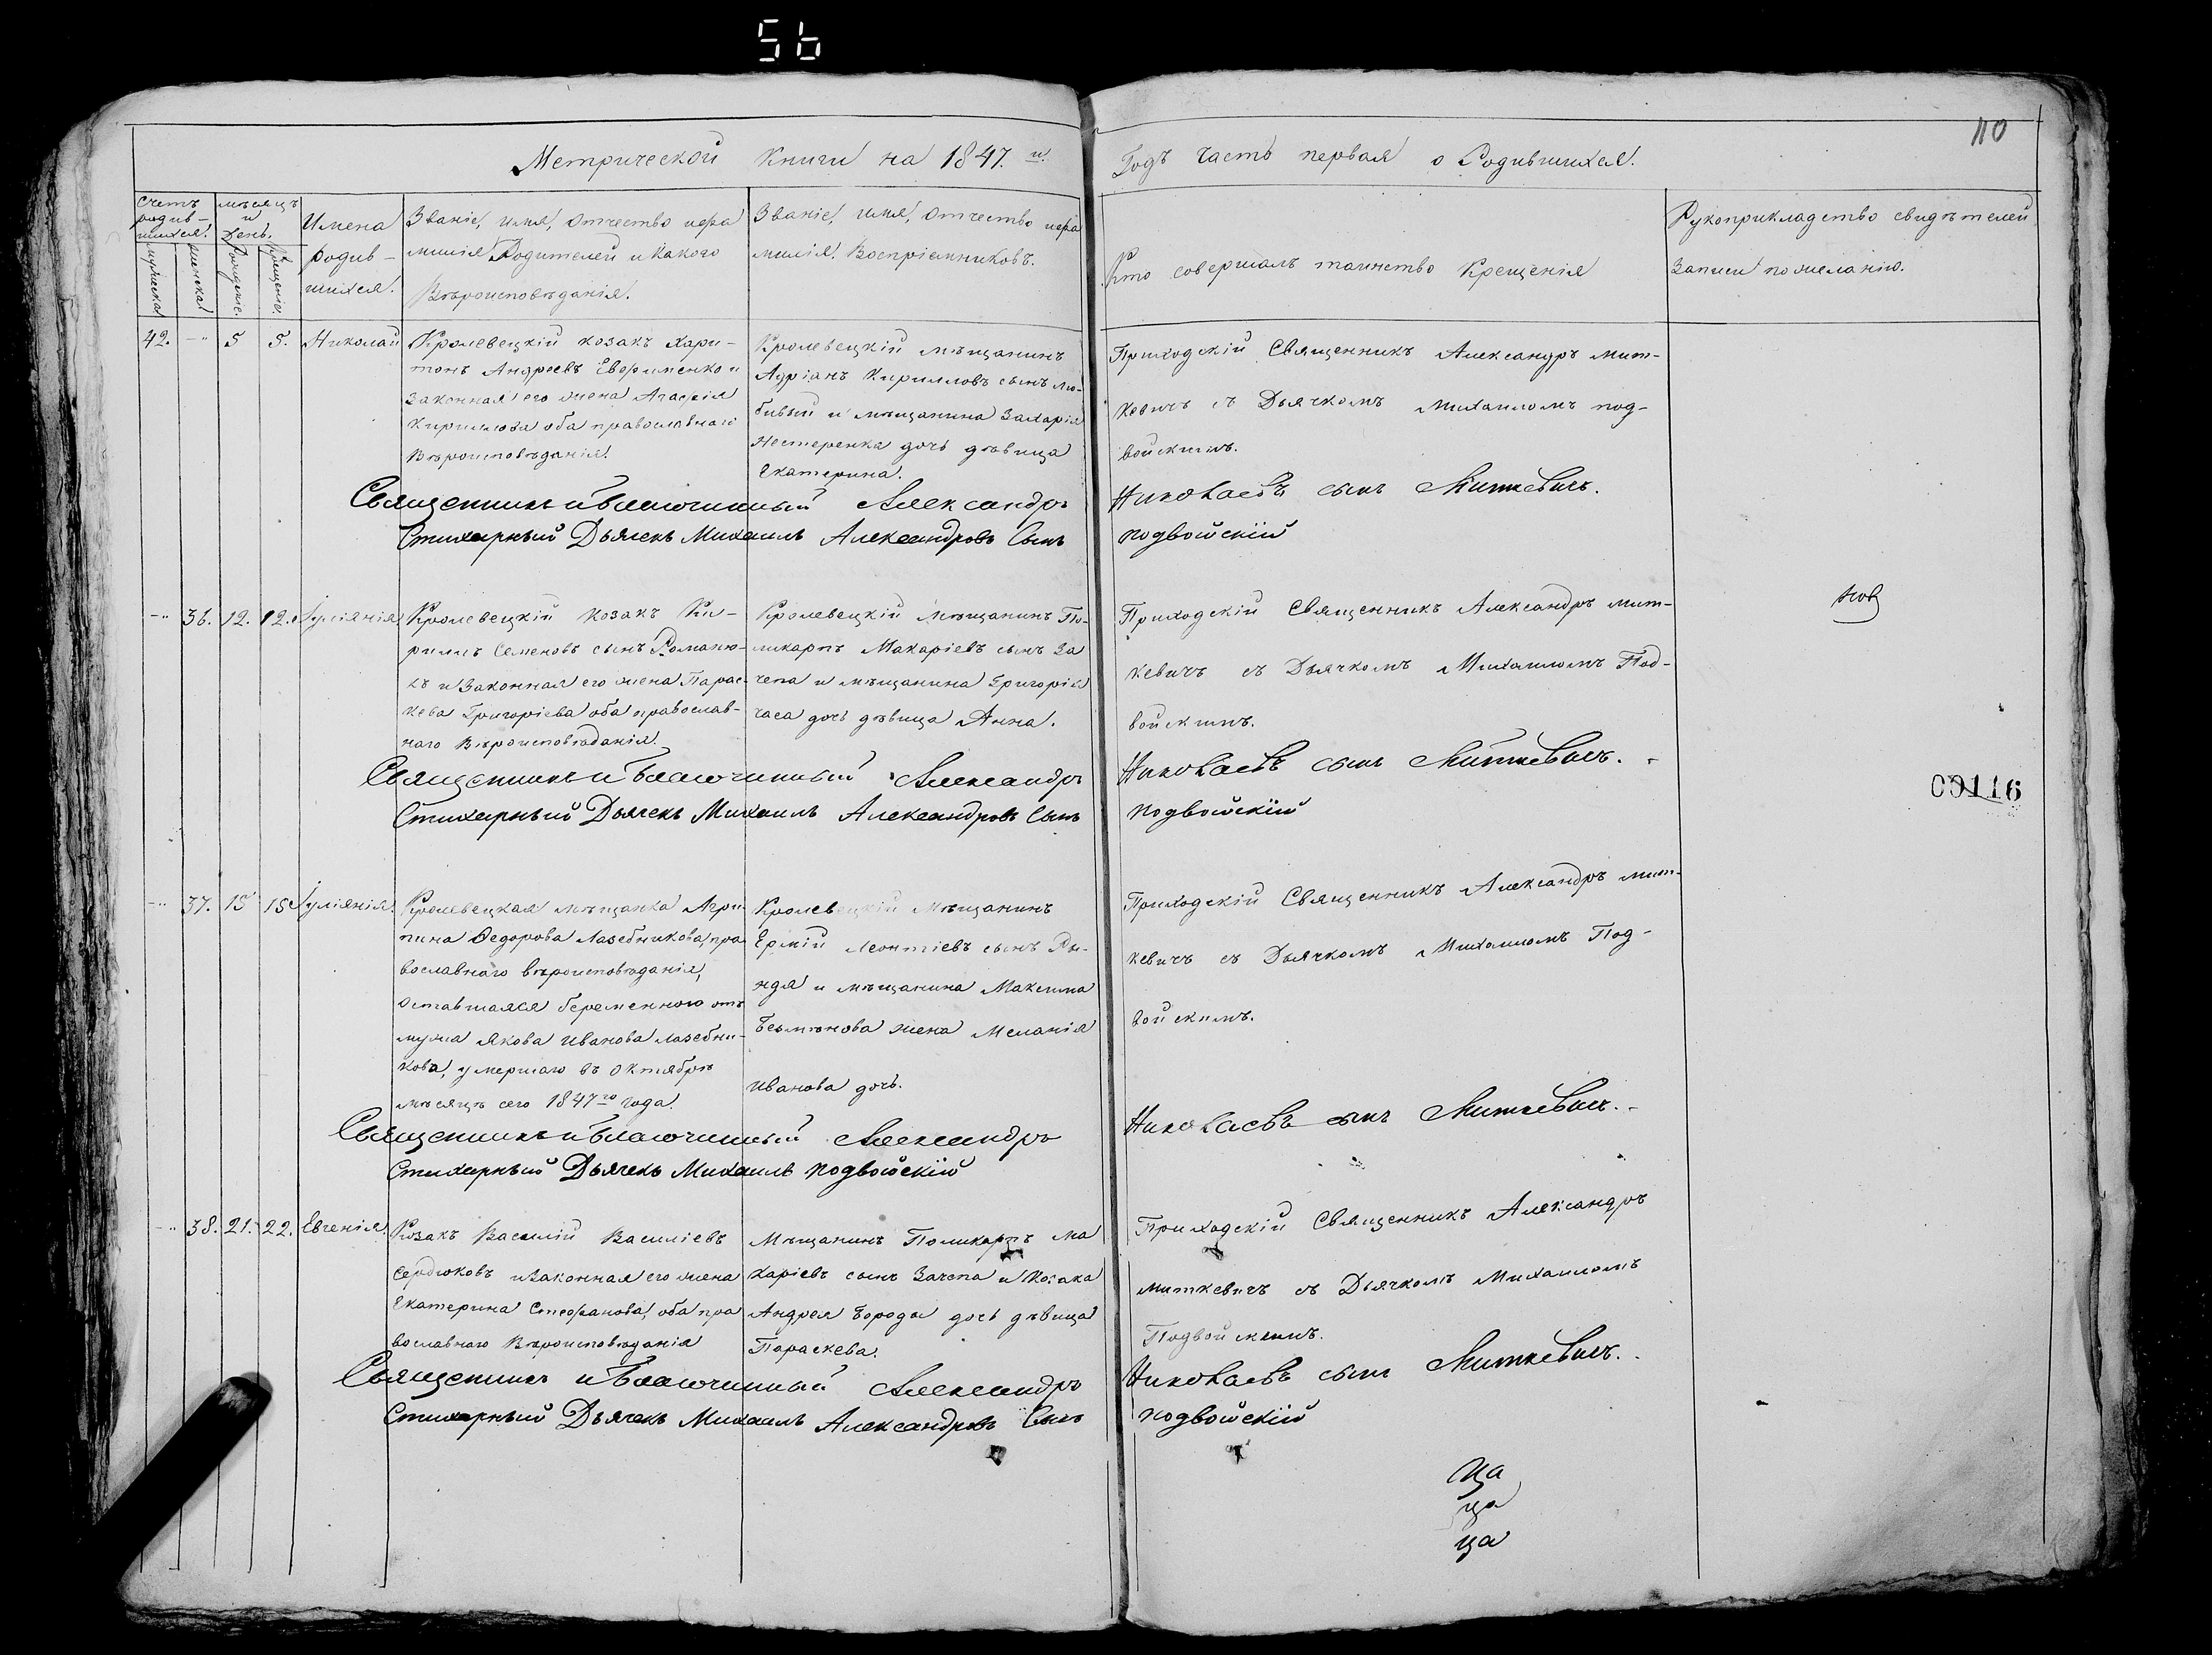 56
110
Метрической Книги на 1847.й Годъ Часть первая о Родившихся.
Счетъ родив-шихся.
мужеска
женска
мѣсяцъ и день.
Рожденіе.
Крещеніе.
Имена родив-шихся.
Званіе, имя, отчество и фа
милія Родителей и Какого
Вѣроисповѣданія.
Званіе, имя, отчество и фа
милія Воспріемниковъ.
Кто совершалъ таинство Крещенія
Рукоприкладство свидѣтелей
Записи по желанію.
42. -- 5 5. Николай
Кролевецкій козакъ Хари-
тонъ Андреевъ Ефименко и
Законная его жена Агафія
Кирилова оба православнаго
Вѣроисповѣданія.
Кролевецкій мѣщанинъ
Адріанъ Кириловъ сынъ Лю-
бивый и мѣщанина Захарія
Нестеренка дочь дѣвица
Екатерина.
Приходскій Священникъ Александръ Мит-
кевичъ съ Дьячкомъ Михаиломъ под-
войскимъ.
Священникъ и Благочинный Александръ Николаевъ сынъ Миткевичъ.
Стихарный Дьячекъ Михаилъ Александровъ Сынъ подвойскій
-- 36. 12. 12. Іуліянія
Кролевецкій козакъ Ки-
риллъ Семеновъ сынъ Романю-
къ и Законная его жена Парас-
кева Григоріева оба православ-
наго Вѣроисповѣданія.
Кролевецкій Мѣщанинъ По-
ликарпъ Макаріевъ сынъ За
чепа и мѣщанина Григорія
часа дочь дѣвица Анна.
Приходскій Священникъ Александръ мит-
кевичъ съ Дьячкомъ Михаиломъ Под-
войскимъ.
Священникъ и Благочинный Александръ Николаевъ сынъ Миткевичъ.
Стихарный Дьячекъ Михаилъ Александровъ Сынъ подвойскій
00116
-- 37. 15 15 Іуліянія.
Кролевецкая мѣщанка Агри
пина Федорова Лазебникова, пра
вославнаго вѣроисповѣданія,
оставшаяся беременною отъ
мужа Якова Иванова Лазебни-
кова, умершаго въ Октябрѣ
мѣсяцѣ сего 1847го года.
Кролевецкій Мѣщанинъ
Ермій Леонтіевъ сынъ Ры-
ндя и мѣщанина Максима
жена Меланія
Иванова дочь.
Приходскій Священникъ Александръ мит-
кевичъ съ Дьячкомъ Михаиломъ Под-
войскимъ.
Священникъ и Благочинный Александръ Николаевъ сынъ Миткевичъ.
Стихарный Дьячекъ Михаилъ подвойскій
-- 38. 21. 22. Евгенія.
Козакъ Василій Василіевъ
Сердюковъ и Законная его жена
Екатерина Стефанова, оба пра
вославнаго Вѣроисповѣданія
Мѣщанинъ Поликарпъ Ма
каріевъ сынъ Зачепа и Козака
Андрея Бороды дочь дѣвица
Параскева.
Приходскій Священникъ Александръ
миткевичъ съ Дьячкомъ Михаиломъ
Подвойскимъ.
Священникъ и Благочинный Александръ Николаевъ сынъ Миткевичъ.
Стихарный Дьячекъ Михаилъ Александровъ Сынъ подвойскій
ца
ца
ца